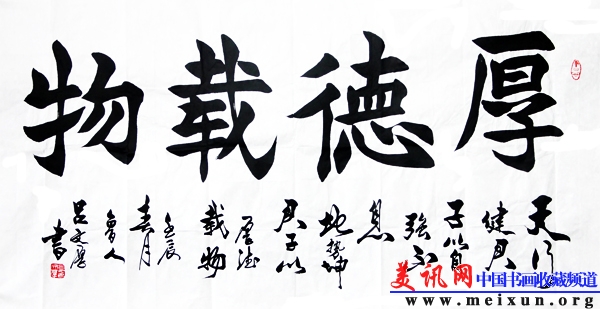 厚德載物
天行
健君
子以自
強不
息
地勢坤
君子以
厚德
載物
壬辰
春月
魯人
吕文
書
美讯网 中国书画收藏频道
www.meixun.org